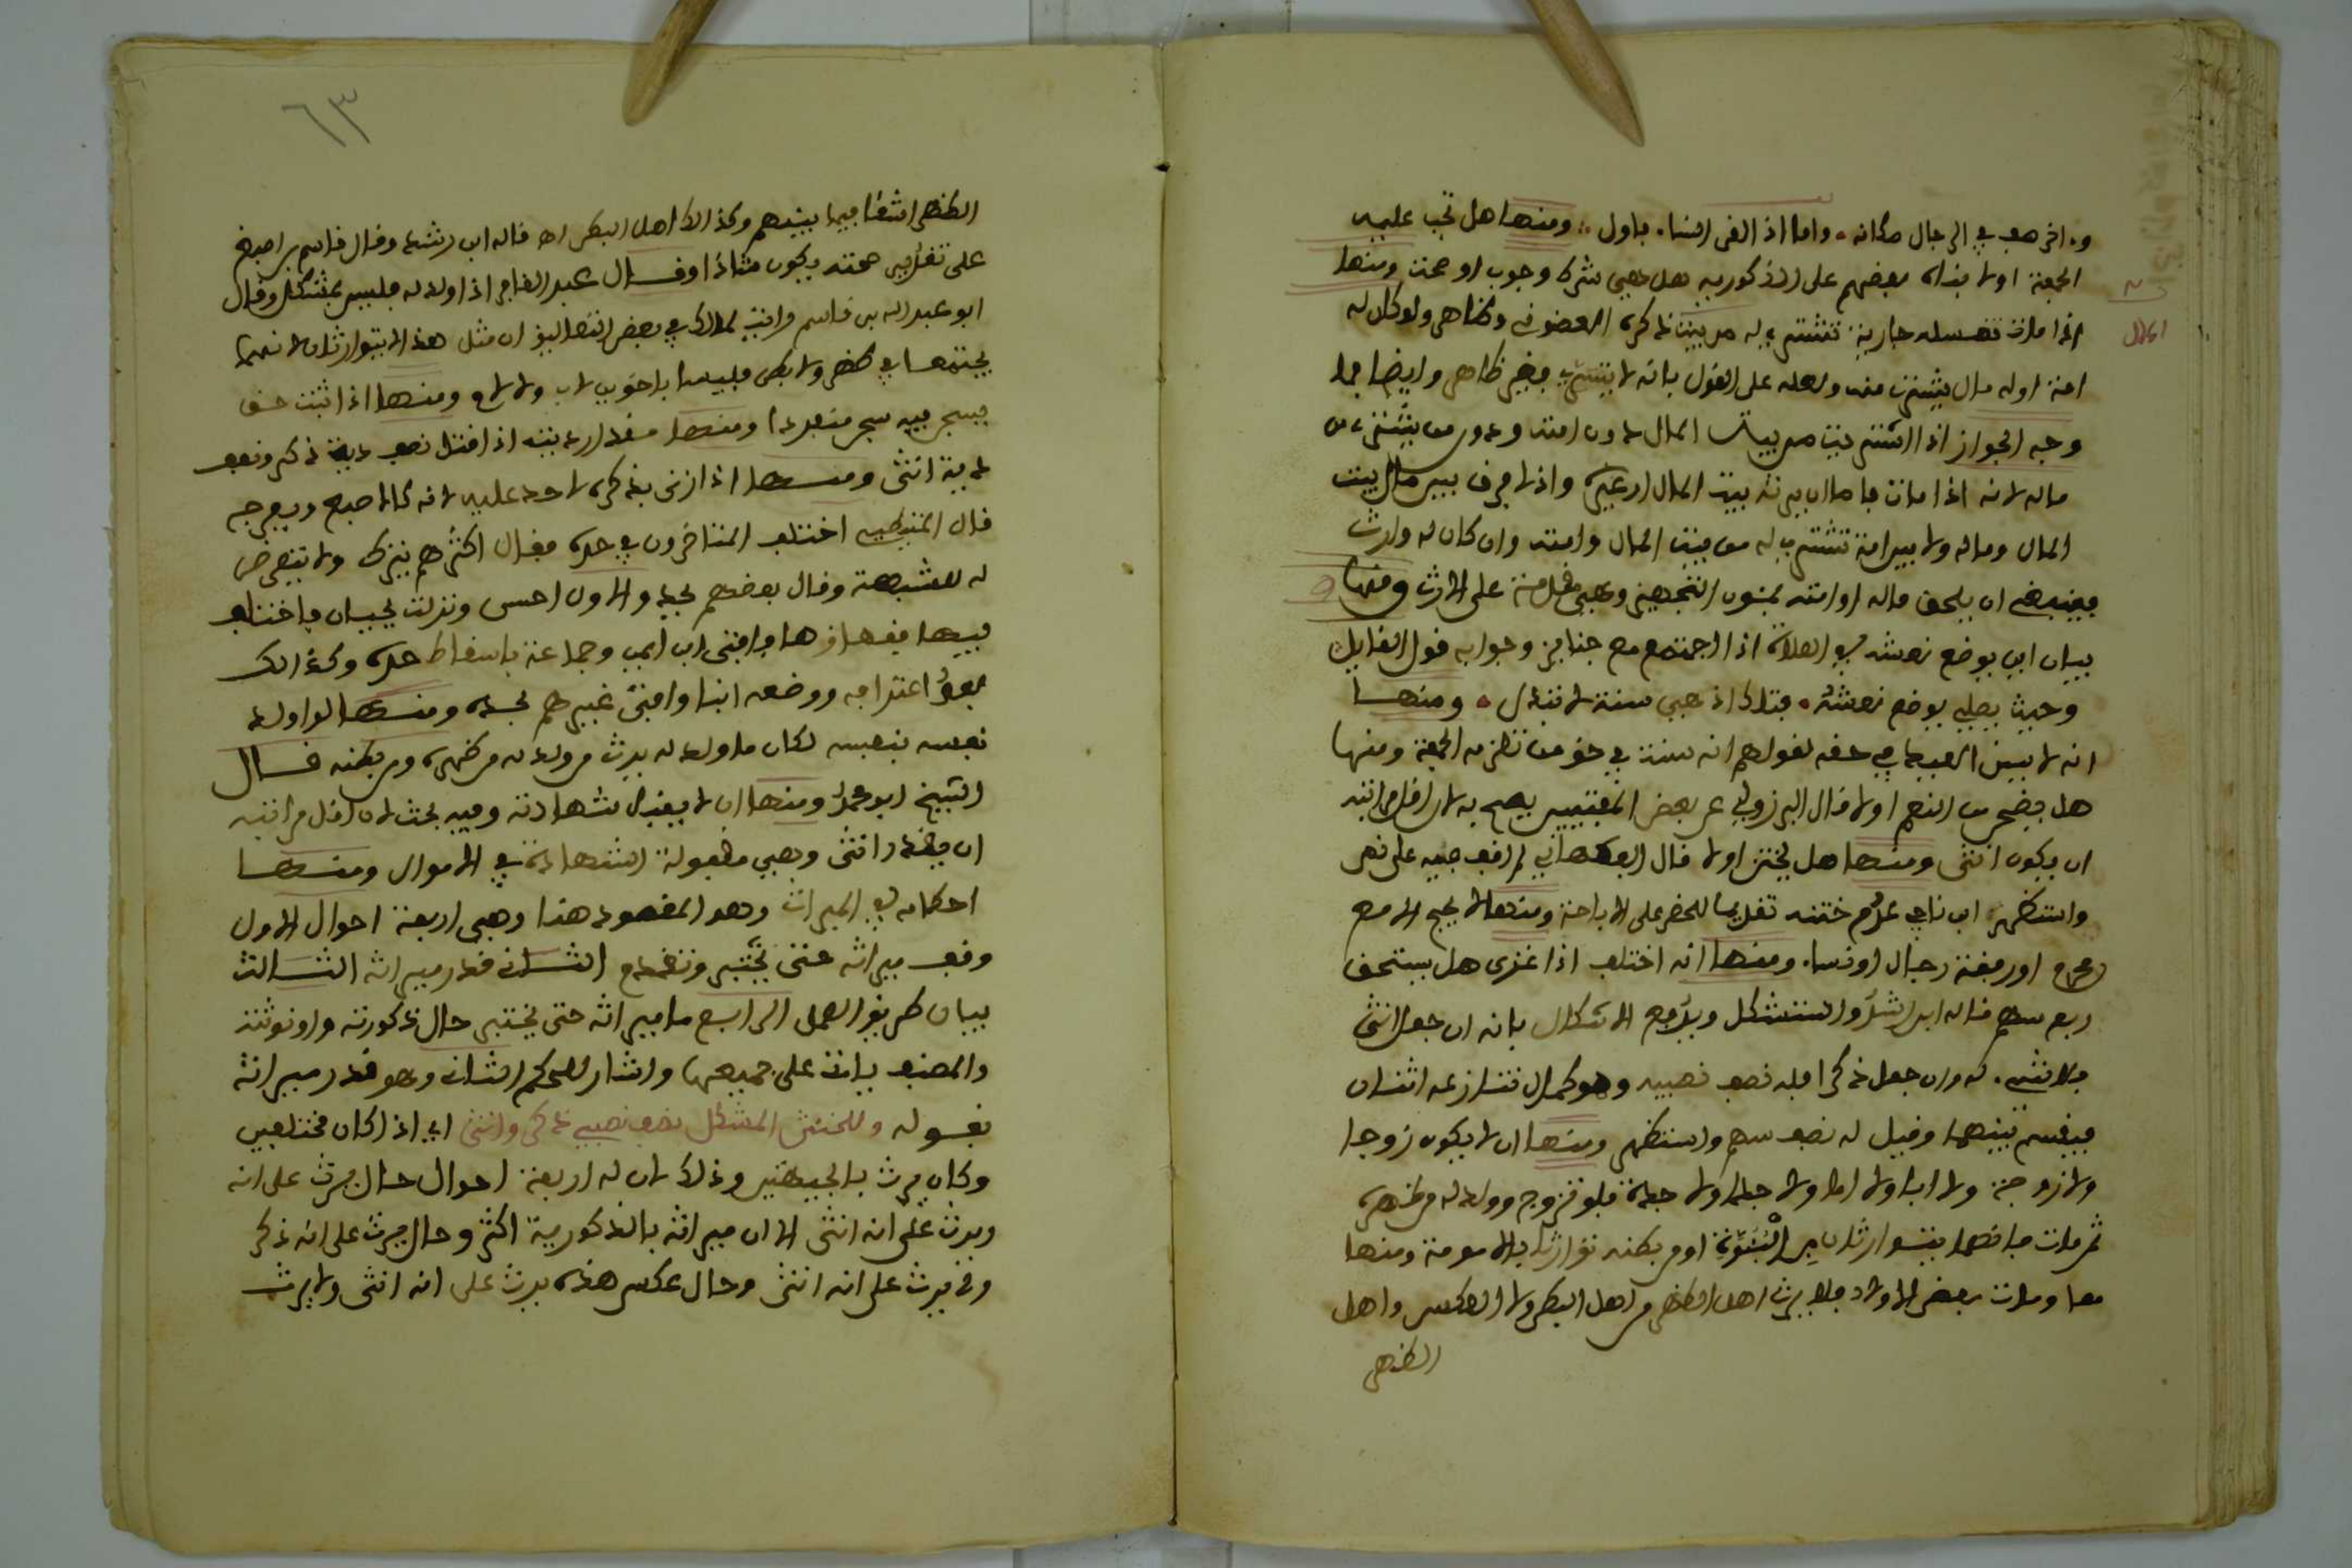 واخر صف في الرجال مكانه وأما إذا الفى النساء فاول ومنها هل تجب عليه
الجمعة اولا بناه بعضهم على ان الذكورية هل هي شرط وجوب او صحة ومنها
إذا مات تغسله جارية تشترى له من بيت المال ذكره العوفي وظاهره ولو كان له
المال
امة اوله مال يشترى منه ولعله على القول بانه لا يشترى بغير ظاهر وايضا فما
وجه الجواز إذا اشتريت من بيت المال دون امته ودون من يشترى من
ماله لانه إذا مات فاما ان يرثه بيت المال او غيره وإذا لا فرق بين مال بيت
المال وماله ولا بين امة تشترى له من بيت المال وامته وان كان له وارث
فينبغي ان يلحق ماله او امته بمؤن التجهيز وهي مقدمة على الارث ومنها
بيان اين يوضع نعشه في الصلاة إذا اجتمع مع جنائز وجوابه قول القائل
وحيث يصلي يوضع نعشه فتلك إذ هي سنة لا تبدل ومنها
انه لا يسن العيد في حقه لقولهم انه سنة في حق من تلزمه الجمعة ومنها
هل يضحى من النعم اولا قال البرزولي عن بعض المفتيين يصح به لان اقل مراتبه
ان يكون انثى ومنها هل يختن اولا قال الفاكهاني لم اقف فيه على نص
واستظهر ابن ناجي عدم ختنه تغليبا للحظر على الاباحة ومنها لا يحج الا مع
محرم او رفقة رجال او نساء ومنها انه اختلف إذا غزى هل يستحق
ربع سهم قاله ابن رشد واستشكل ويدفع الاشكال بانه ان جعل انثى
فلا شيء له وان جعل ذكرا فله نصف نصيبه وهو كمال تنازعه اثنان
فيقسم بينهما وقيل له نصف سهم واستظهر ومنها ان لا يكون زوجا
ولا زوجة ولا ابا ولا اما ولا جدا ولا جدة فلو تزوج وولد له من ظهره
ثم مات فانهما يتوارثان من البنوة او من بطنه توارثا بالامومة ومنها
معا ومات بعض الاولاد فلا يرث اهل الظهر من اهل البطن ولا العكس واهل
الظهر
٦٣
الظهر اشقا فيما بينهم وكذالك اهل البطن اه قاله ابن رشد وقال قاسم بن اصبغ
على تقدير صحته يكون مثل ذا وقال عبد الغافر اذا ولد له فليس بمشكل وقال
ابو عبد الله بن قاسم رايت لمالك في بعض التعاليق ان مثل هذا لا يتوارثان لانهما
يجتمعا في ظهر ولا بطن فليسا باخوين لاب ولا لام ومنها إذا ثبت حق
فيسجن فيه سجن منفردا ومنها مقدار ديته إذا قتل نصف دية ذكر ونصف
دية انثى ومنها إذا زنى بذكره لا حد عليه لانه كالاصبع وبفرجه
قال المتيطي اختلف المتاخرون في حده فقال اكثرهم يترك ولا يتعرض
له للشبهة وقال بعضهم يحد والاول احسن ونزلت بجيان فاختلف
فيها فقهاؤها فافتى ابن ايمن وجماعة باسقاط حده وكذالك
بعد اعترافه ووضعه ابنا وافتى غيرهم بحده ومنها لو اولد
نفسه بنفسه لكان ما ولد له يرث من ولد له من ظهره ومن بطنه قال
الشيخ ابو محمد ومنها ان لا يقبل شهادته وفيه بحث لان اقل مراتبه
ان يقدر انثى وهي مقبولة الشهادة في الاموال ومنها
احكامه في الميراث وهو المقصود هنا وهي اربعة احوال الاول
وقف ميراثه حتى يختبر وتقدم الثاني قدر ميراثه الثالث
بيان طريق العمل الرابع ما ميراثه حتى يختبر حال ذكورته وانوثته
والمصنف بانت على جميعها واشار للحكم الثاني وهو قدر ميراثه
بقوله وللخنثى المشكل نصف نصيبي ذكر وانثى اي إذا كان مختلفين
وكان يرث بالجهتين وذلك لان له اربعة احوال حال يرث على انه
ويرث على انه انثى الا ان ميراثه بالذكورية اكثر وحال يرث على انه ذكر
ولا يرث على انه انثى وحال عكس هذه يرث على انه انثى ولا يرث